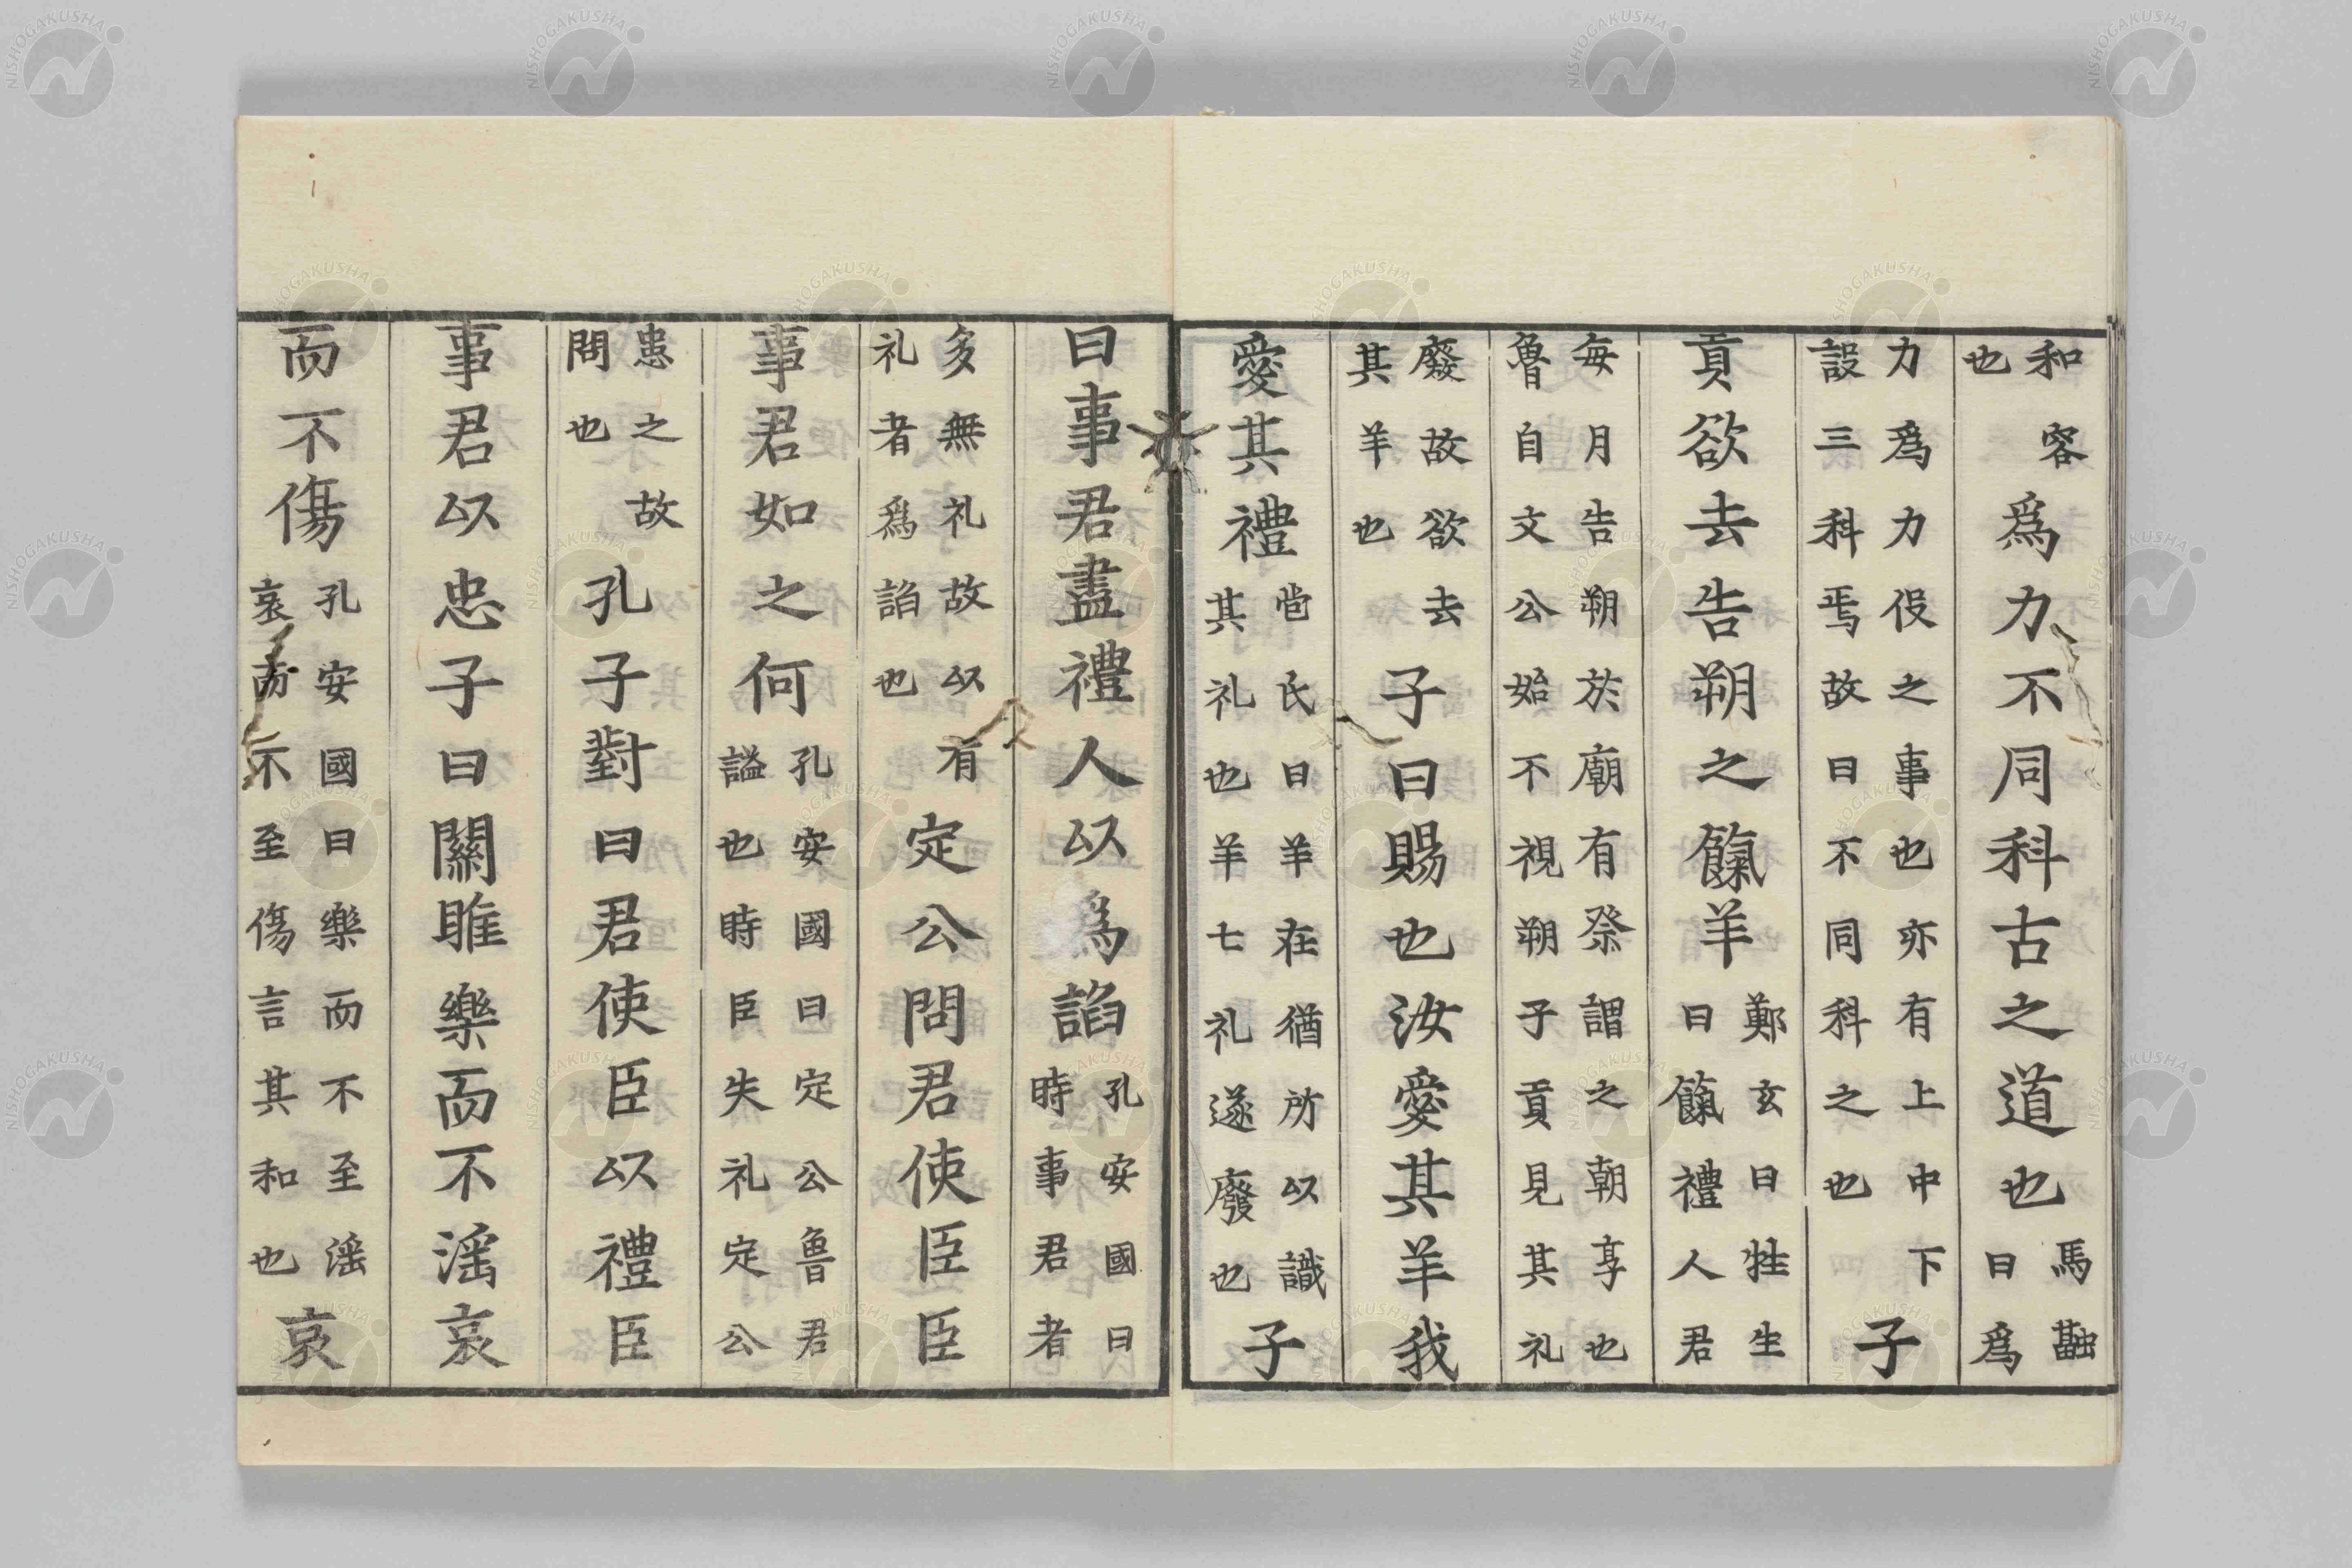 和容也爲力不同科古之道也馬融曰爲
力爲力役之事也亦有上中下設三科焉故曰不同科之也子
貢欲去告朔之餼羊鄭玄曰牲生曰餼禮人君
每月告朔於廟有祭謂之朝享也魯自文公始不視朔子貢見其礼
廢故欲去其羊也子曰賜也汝愛其羊我
愛其禮苞氏曰羊在猶所以識其礼也羊亡礼遂廢也子
曰事君盡禮人以爲諂孔安國曰時事君者
多無礼故以有礼者爲諂也定公問君使臣臣
事君如之何孔安國曰定公魯君謚也時臣失礼定公
患之故問也孔子對曰君使臣以禮臣
事君以忠子曰關雎樂而不淫哀
而不傷孔安國曰樂而不至淫哀而不至傷言其和也哀
NISHOGAKUSHA